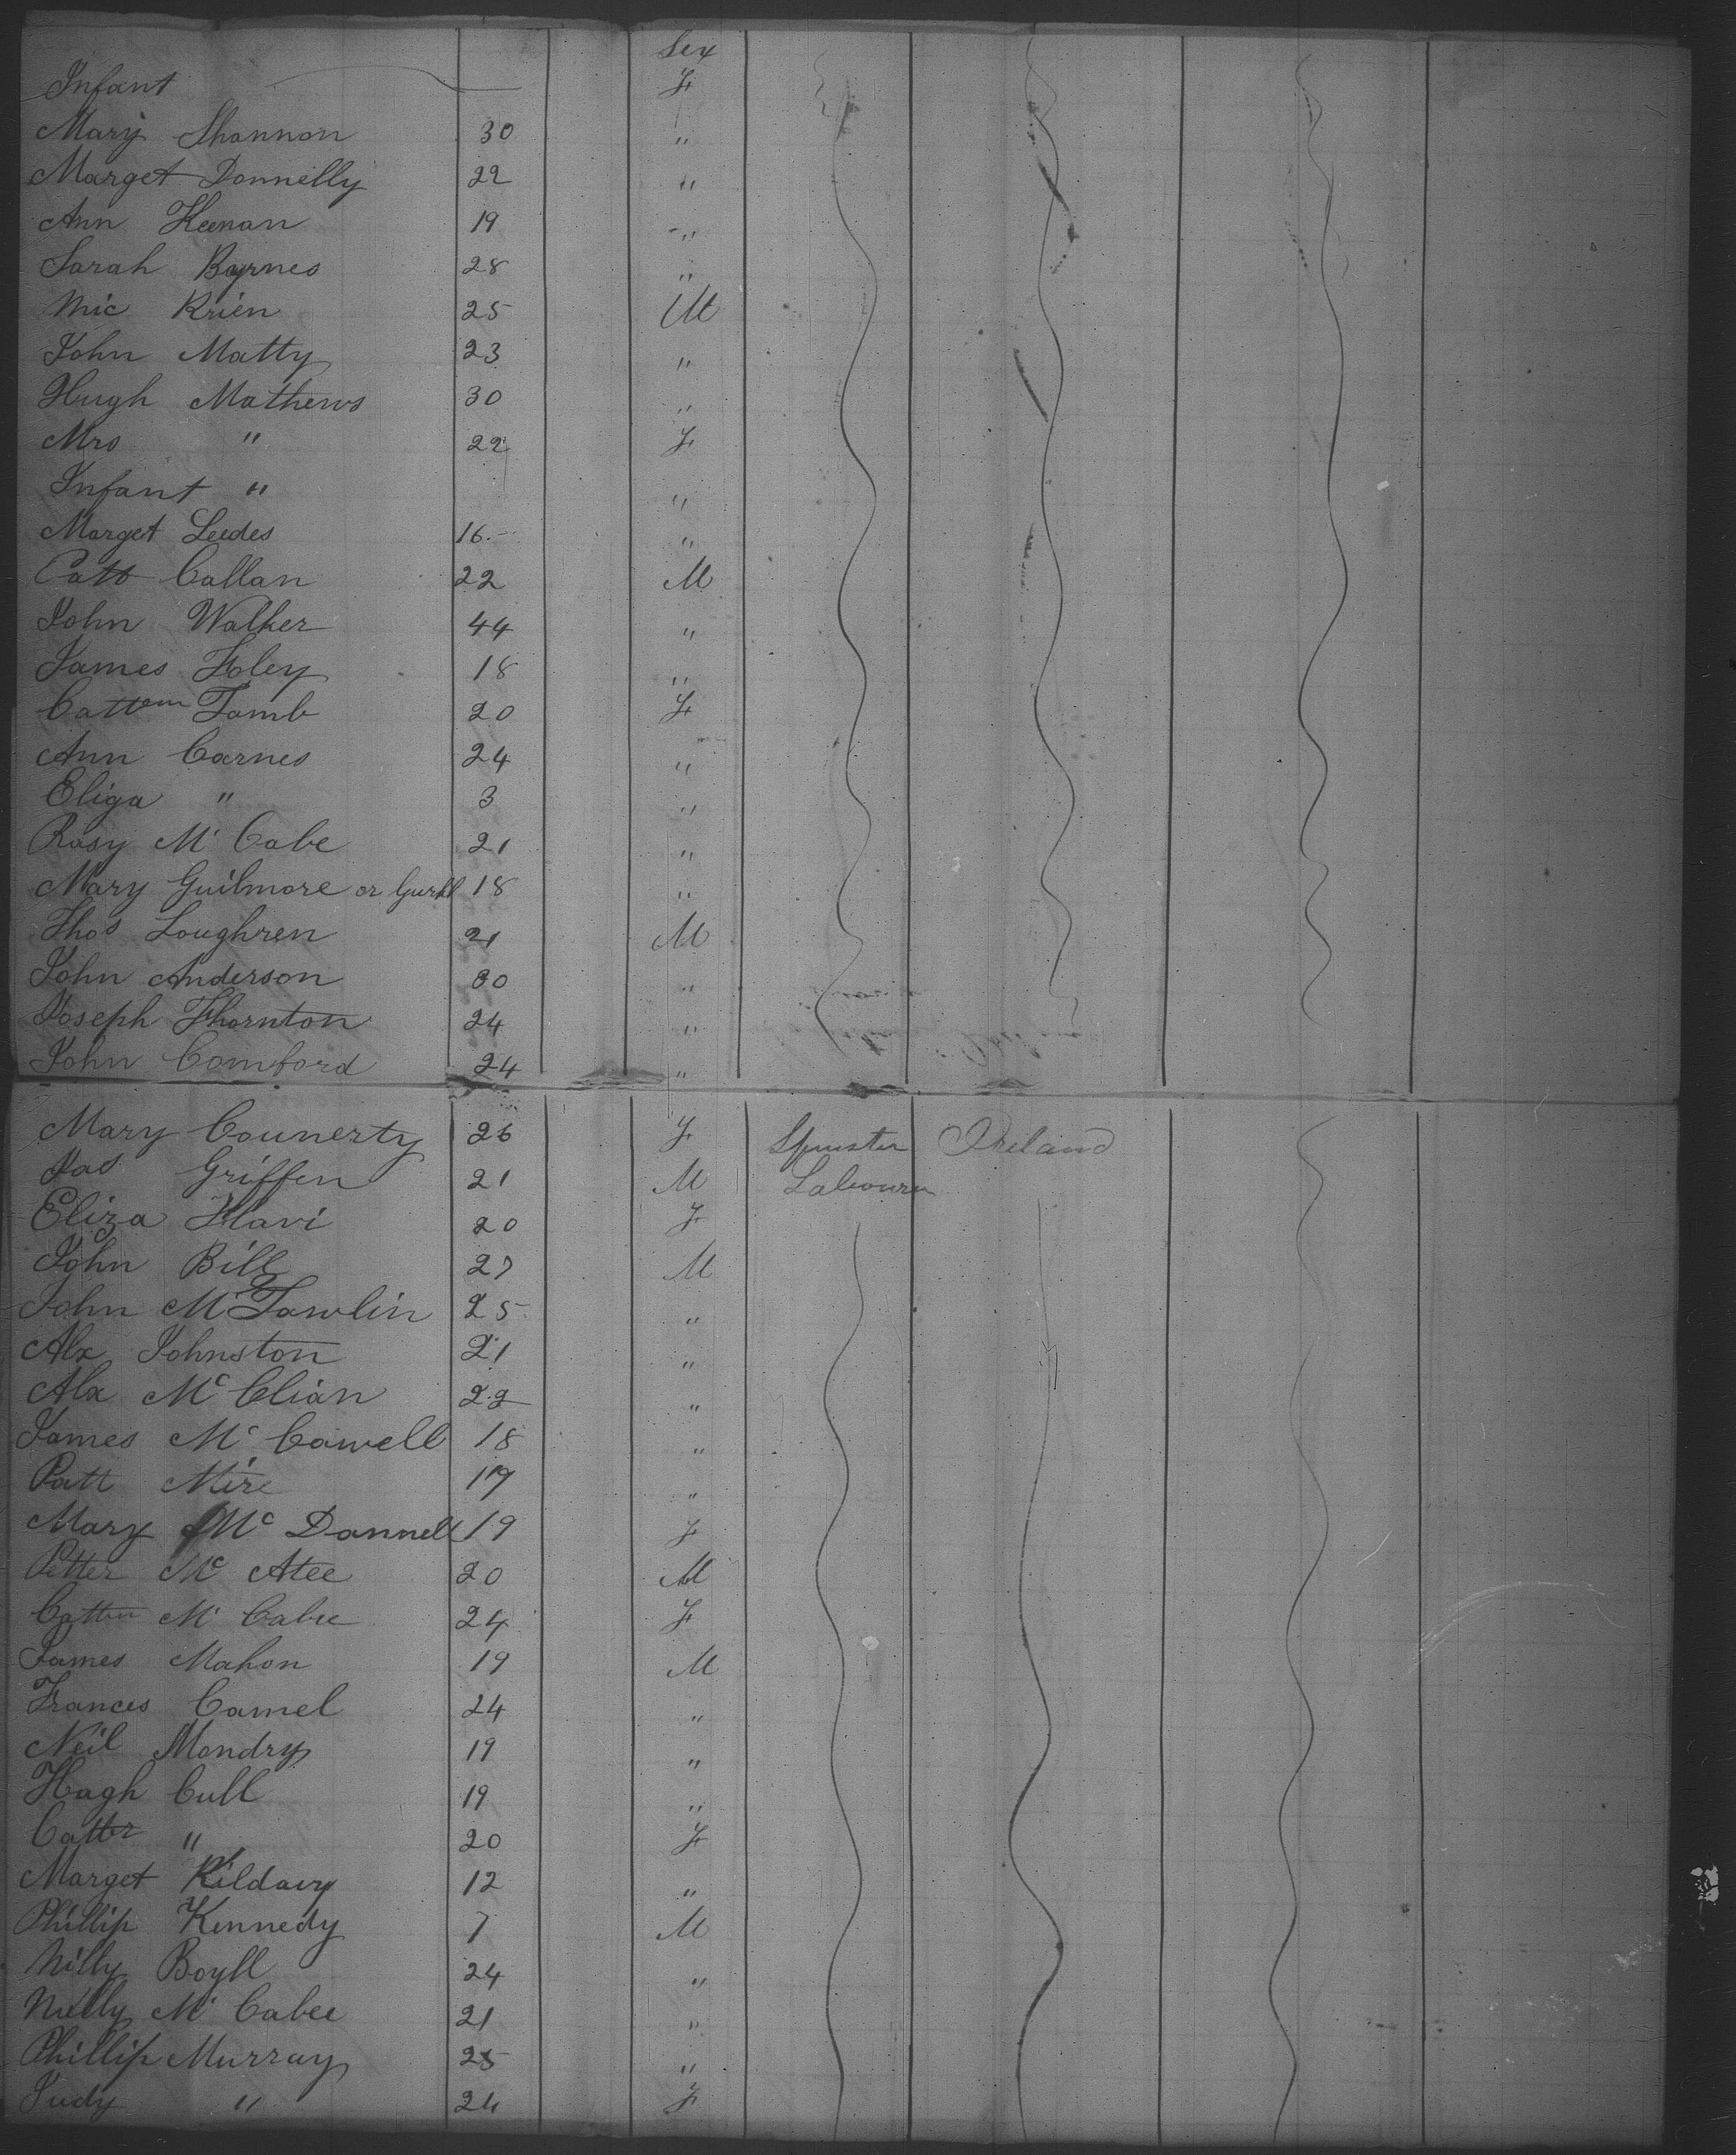 Sex
Infant F
Mary Shannon 30 "
Marget Donnelly 22 "
Ann Keenan 19 "
Sarah Byrnes 28 "
Mic Krien 25 M
John Matty 23 "
Hugh Mathews 30 "
Mrs " 22 F
Infant " "
Marget Leedes 16 "
Patt Callan 22 M
John Walker 44 "
James Foley 18 "
Cattern Lamb 20 F
Ann Carnes 24 "
Eliga " 3 "
Rosy Mc Cabe 21 "
Mary Guilmore or 18 "
Thos Loughren 21 M
John Anderson 30 "
Joseph Thornton 24 "
John Comford 24 "
Mary Counerty 26 F Spinster Ireland
Jas Griffen 21 M Labourer
Eliza Havi 20 F
John Bill 27 M
John Mc Lawlin 25 "
Alx Johnston 21 "
Alx Mc Clian 22 "
James Mc Cawell 18 "
Patt Mire 19 "
Mary Mc Dannell 19 F
Petter Mc Atee 20 M
Catten Mc Cabee 24 F
James Mahon 19 M
Frances Camel 24 "
Neil Mondry 19 "
Hagh Cull 19 "
Catter " 20 F
Marget Kildavy 12 "
Phillip Kennedy 7 M
Nilly Boyll 24 "
Nelly Mc Cabee 21 "
Phillip Murray 25 "
Judy " 24 F